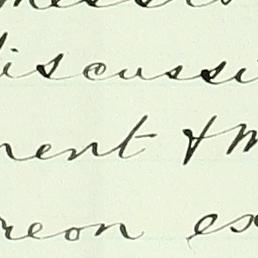 discussi
ment & M
reon ex